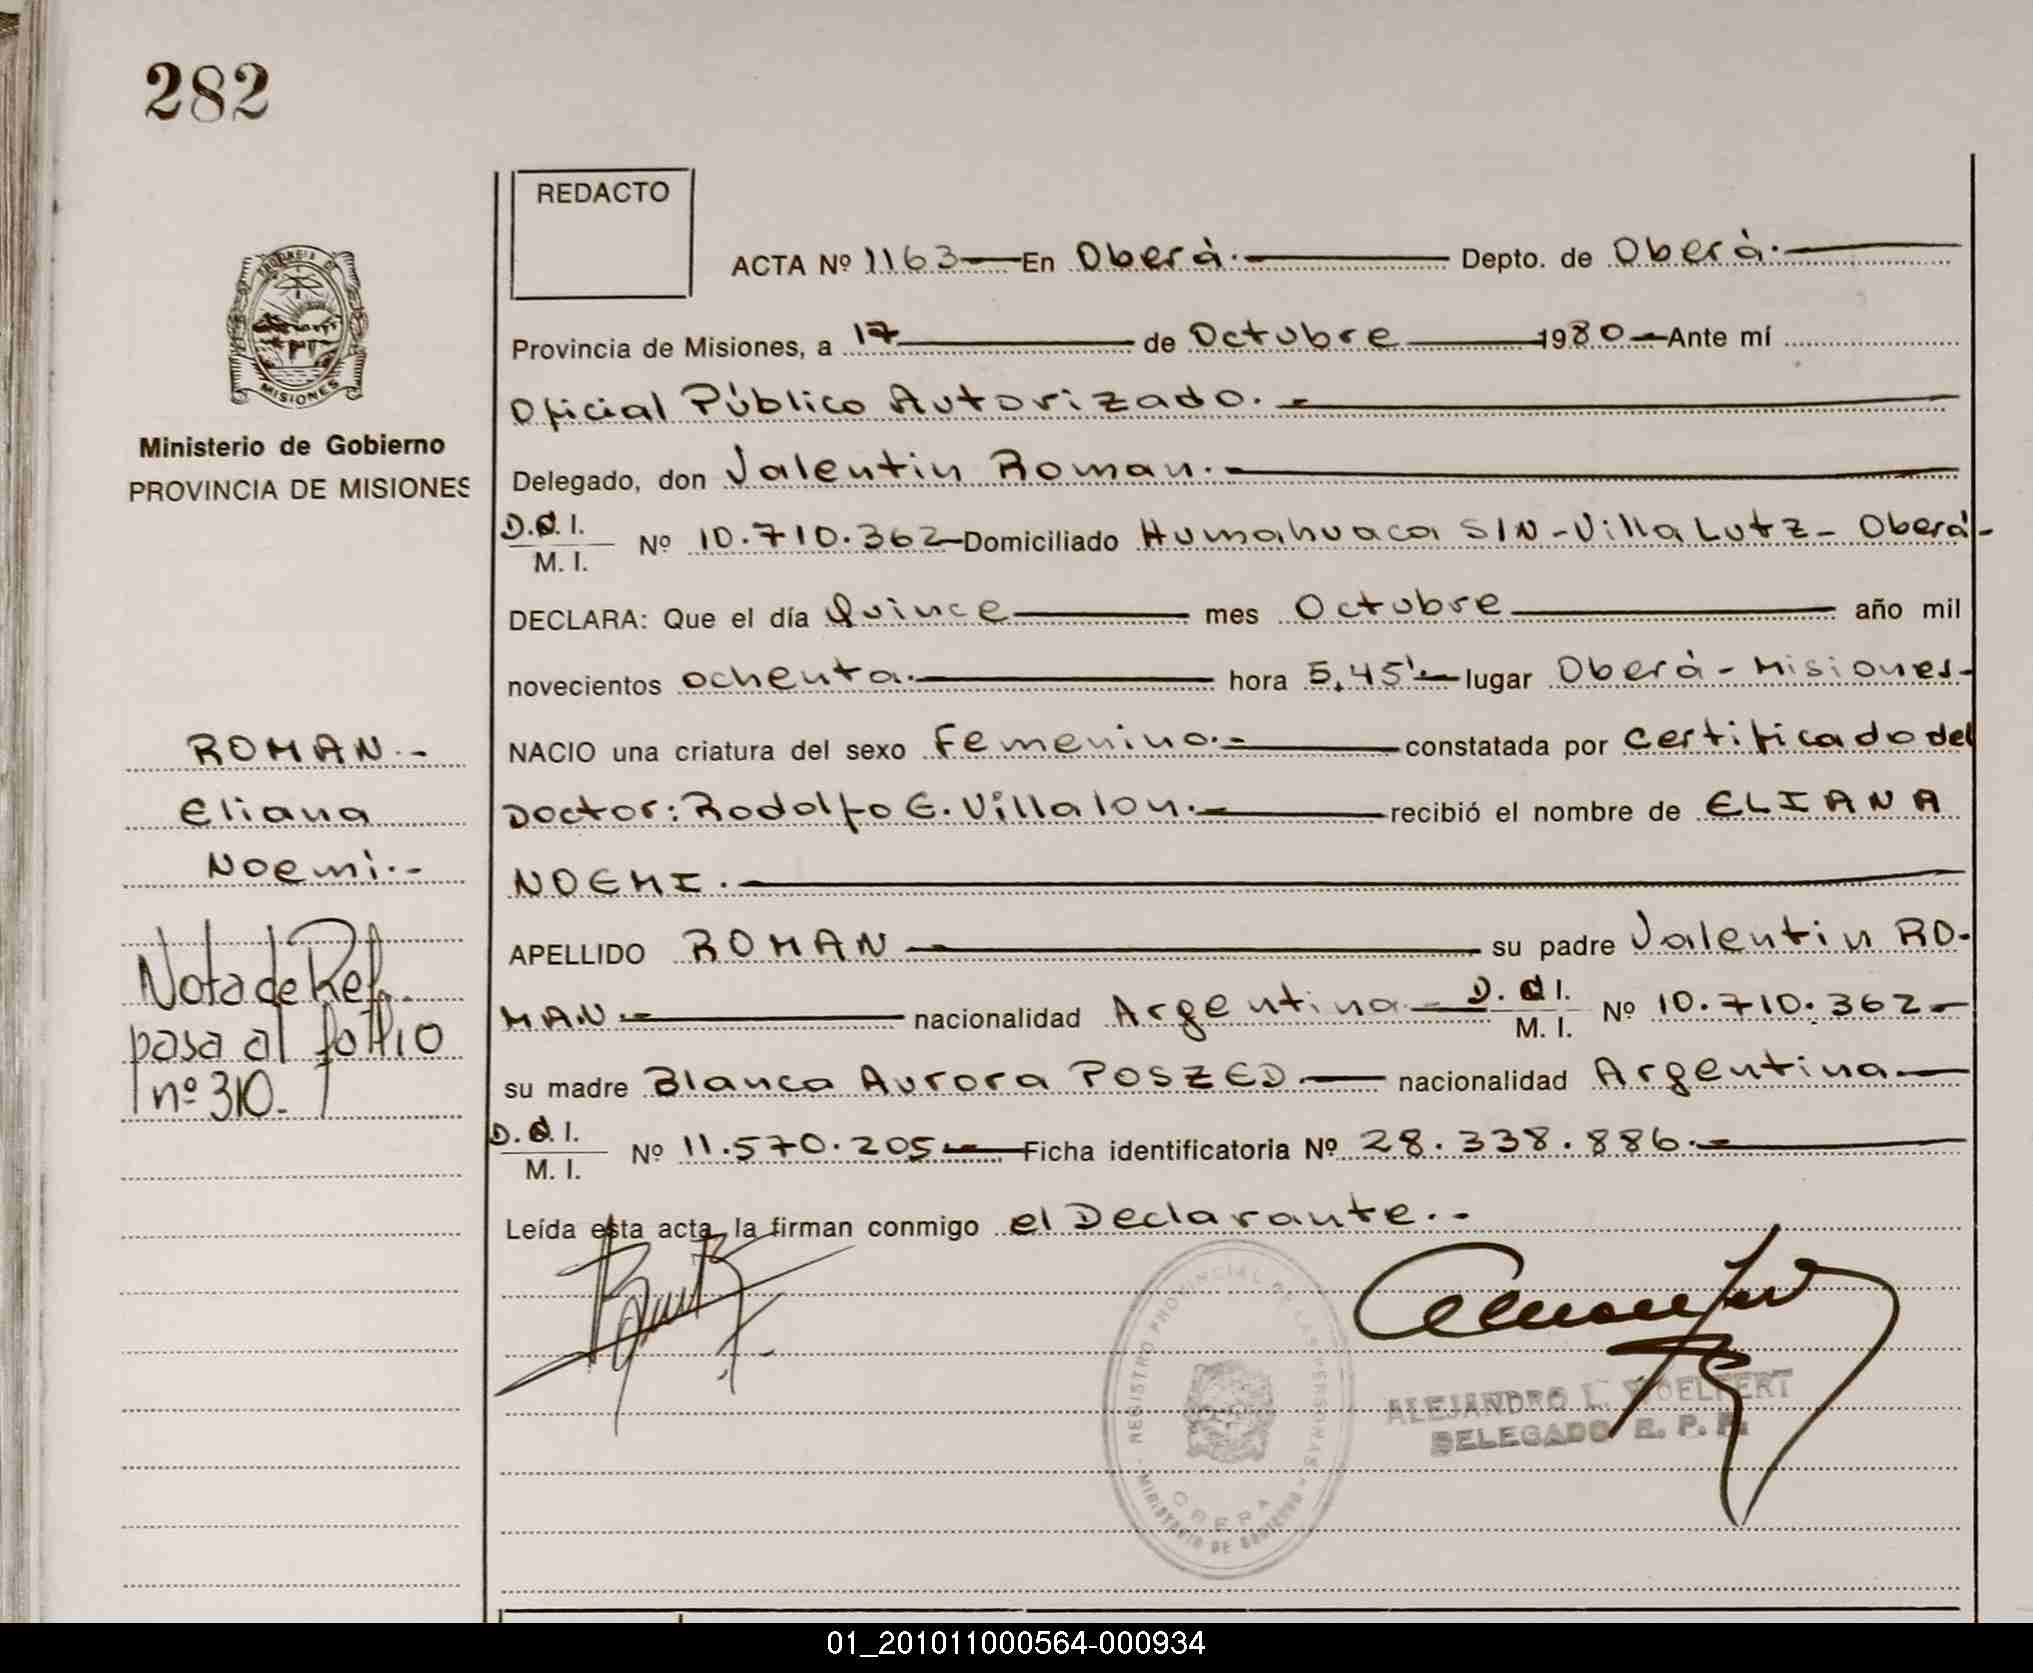 282
REDACTO
ACTA Nº 1163 En Oberà. Depto. de Oberà.
Provincia de Misiones, a 17 de Octubre 1980 Ante mí
Oficial Público Autorizado.
Delegado, don Valentin Roman.
D.C.I.
M. I. Nº 10.710.362 Domiciliado Humahuaca S/N-Villa Lutz- Oberà-
DECLARA: Que el día Quince mes Octubre año mil
novecientos ochenta. hora 5,45' lugar Oberà-Misiones-
NACIO una criatura del sexo Femenino.- constatada por certificado del
Doctor: Rodolfo E. Villalon.- recibió el nombre de ELIANA
NOEMI.
APELLIDO ROMAN su padre Valentin RO-
MAN nacionalidad Argentina D. C I.
M. I. Nº 10.710.362-
su madre Blanca Aurora POSZED nacionalidad Argentina
D.C.I.
M. I. Nº 11.570.205 Ficha identificatoria Nº 28.338.886.-
Leída esta acta, la firman conmigo el Declarante.-
PROVINCIA DE
MISIONES
Ministerio de Gobierno
PROVINCIA DE MISIONES
ROMAN.-
Eliana
Noemi.-
Nota de Ref.
pasa al follio
nº 310.
REGISTRO PROVINCIAL DE LAS PERSONAS
OBERA
MINISTERIO DE GOBIERNO
ALEJANDRO L. WOELFERT
DELEGADO R. P. P.
01_201011000564-000934